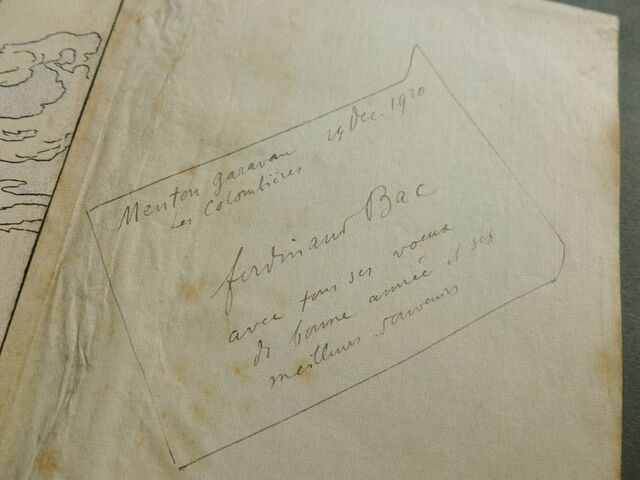 Menton Garavan 29 Dec. 1920
Les Colombières
Ferdinand Bac
avec tous ses voeux
de bonne année et ses
meilleurs souvenirs